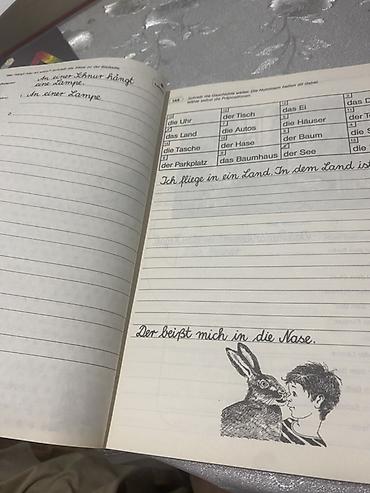 An einer Schnur hängt
eine Lampe.
1. An einer Lampe
2.
148 Schreib die Geschichte weiter. Die Nummern helfen dir dabei.
Wähle selbst die Präpositionen.
die Uhr der Tisch das Ei
das Land die Autos die Häuser
die Tasche der Hase der Baum
der Parkplatz das Baumhaus der See
Ich fliege in ein Land. In dem Land ist
Der beißt mich in die Nase.